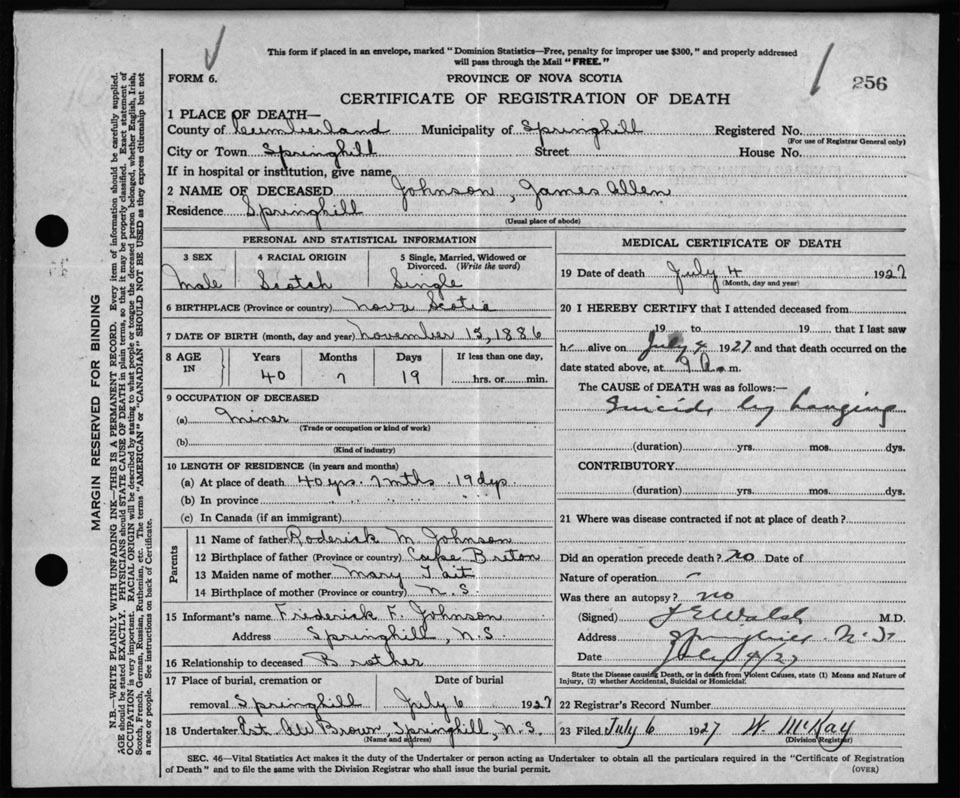 This form if placed in an envelope, marked "Dominion Statistics—Free, penalty for improper use $300," and properly addressed
will pass through the Mail "FREE."
FORM 6.
PROVINCE OF NOVA SCOTIA
256
CERTIFICATE OF REGISTRATION OF DEATH
1 PLACE OF DEATH—
County of Cumberland Municipality of Springhill Registered No.
(For use of Registrar General only)
City or Town Springhill Street House No.
If in hospital or institution, give name
2 NAME OF DECEASED Johnson, James Allen
Residence Springhill
(Usual place of abode)
PERSONAL AND STATISTICAL INFORMATION
3 SEX
4 RACIAL ORIGIN
5 Single, Married, Widowed or
Divorced. (Write the word)
Male Scotch Single
6 BIRTHPLACE (Province or country) Nova Scotia
7 DATE OF BIRTH (month, day and year) November 15, 1886
8 AGE
IN
Years Months Days If less than one day,
40 7 19 hrs. or min.
9 OCCUPATION OF DECEASED
(a) Miner
(Trade or occupation or kind of work)
(b)
(Kind of industry)
10 LENGTH OF RESIDENCE (in years and months)
(a) At place of death 40 yrs. 7 mths 19 dys.
(b) In province " " "
(c) In Canada (if an immigrant)
Parents
11 Name of father Roderick M. Johnson
12 Birthplace of father (Province or country) Cape Breton
13 Maiden name of mother Mary Tait
14 Birthplace of mother (Province or country) N.S.
15 Informant's name Frederick F. Johnson
Address Springhill, N.S.
16 Relationship to deceased Brother
17 Place of burial, cremation or Date of burial
removal Springhill July 6 1927
18 Undertaker Est. AW Brown, Springhill, N.S.
(Name and address)
MEDICAL CERTIFICATE OF DEATH
19 Date of death July 4 1927
(Month, day and year)
20 I HEREBY CERTIFY that I attended deceased from
19 to 19 that I last saw
he alive on July 4 1927 and that death occurred on the
date stated above, at 9 a. m.
The CAUSE of DEATH was as follows:—
Suicide by hanging
(duration) yrs. mos. dys.
CONTRIBUTORY
(duration) yrs. mos. dys.
21 Where was disease contracted if not at place of death?
Did an operation precede death? No Date of
Nature of operation
Was there an autopsy? no
(Signed) Walsh M.D.
Address Springhill N.S.
Date July 4/27
State the Disease causing Death, or in death from Violent Causes, state (1) Means and Nature of
Injury, (2) whether Accidental, Suicidal or Homicidal.
22 Registrar's Record Number
23 Filed July 6 1927 W. McKay
(Division Registrar)
SEC. 46—Vital Statistics Act makes it the duty of the Undertaker or person acting as Undertaker to obtain all the particulars required in the "Certificate of Registration
of Death" and to file the same with the Division Registrar who shall issue the burial permit.
(OVER)
MARGIN RESERVED FOR BINDING
N.B.—WRITE PLAINLY WITH UNFADING INK—THIS IS A PERMANENT RECORD. Every item of information should be carefully supplied.
AGE should be stated EXACTLY. PHYSICIANS should STATE CAUSE OF DEATH in plain terms, so that it may be properly classified. Exact statement of
OCCUPATION is very important. RACIAL ORIGIN will be described by stating to what people or tongue the deceased person belonged, whether English, Irish,
Scotch, French, German, Russian, Ruthenian, etc. The terms "AMERICAN" or "CANADIAN" SHOULD NOT BE USED as they express citizenship but not
a race or people. See instructions on back of Certificate.